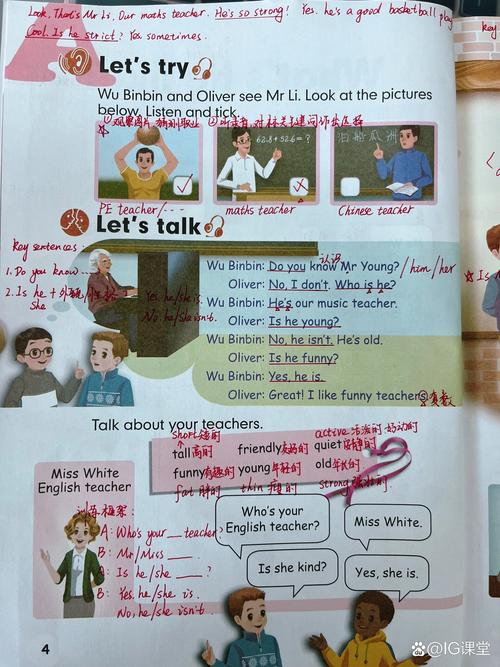 Look, That's Mr Li, Our maths teacher. He's so strong! Yes. he's a good basketball play
Cool. Is he strict? Yes, sometimes.
Let's try
Wu Binbin and Oliver see Mr Li. Look at the pictures
below. Listen and tick.
PE teacher/---
62.8 + 52.6 = ?
maths teacher
泊船瓜洲
Chinese teacher
Let's talk
Key sentences:
1. Do you know...
2. Is he +
she
Yes, he/she is.
No, he/she isn't.
认识
Wu Binbin: Do you know Mr Young? /him/her
Oliver: No, I don't. Who is he?
Wu Binbin: He's our music teacher.
Oliver: Is he young?
Wu Binbin: No, he isn't. He's old.
Oliver: Is he funny?
Wu Binbin: Yes, he is.
Oliver: Great! I like funny teachers. 复数
Talk about your teachers.
short 矮的
active 活泼的 好动的
tall 高的 friendly 友好的 quiet 安静的
funny 有趣的 young 年轻的 old 年长的
fat 胖的 thin 瘦的 strong 强壮的
Miss White
English teacher
A: Who's your __ teacher?
B: Mr/Miss ___.
A: Is he/she ___?
B: Yes, he/she is.
No, he/she isn't.
Who's your
English teacher?
Miss White.
Is she kind?
Yes, she is.
4
key
Is
@IG课堂